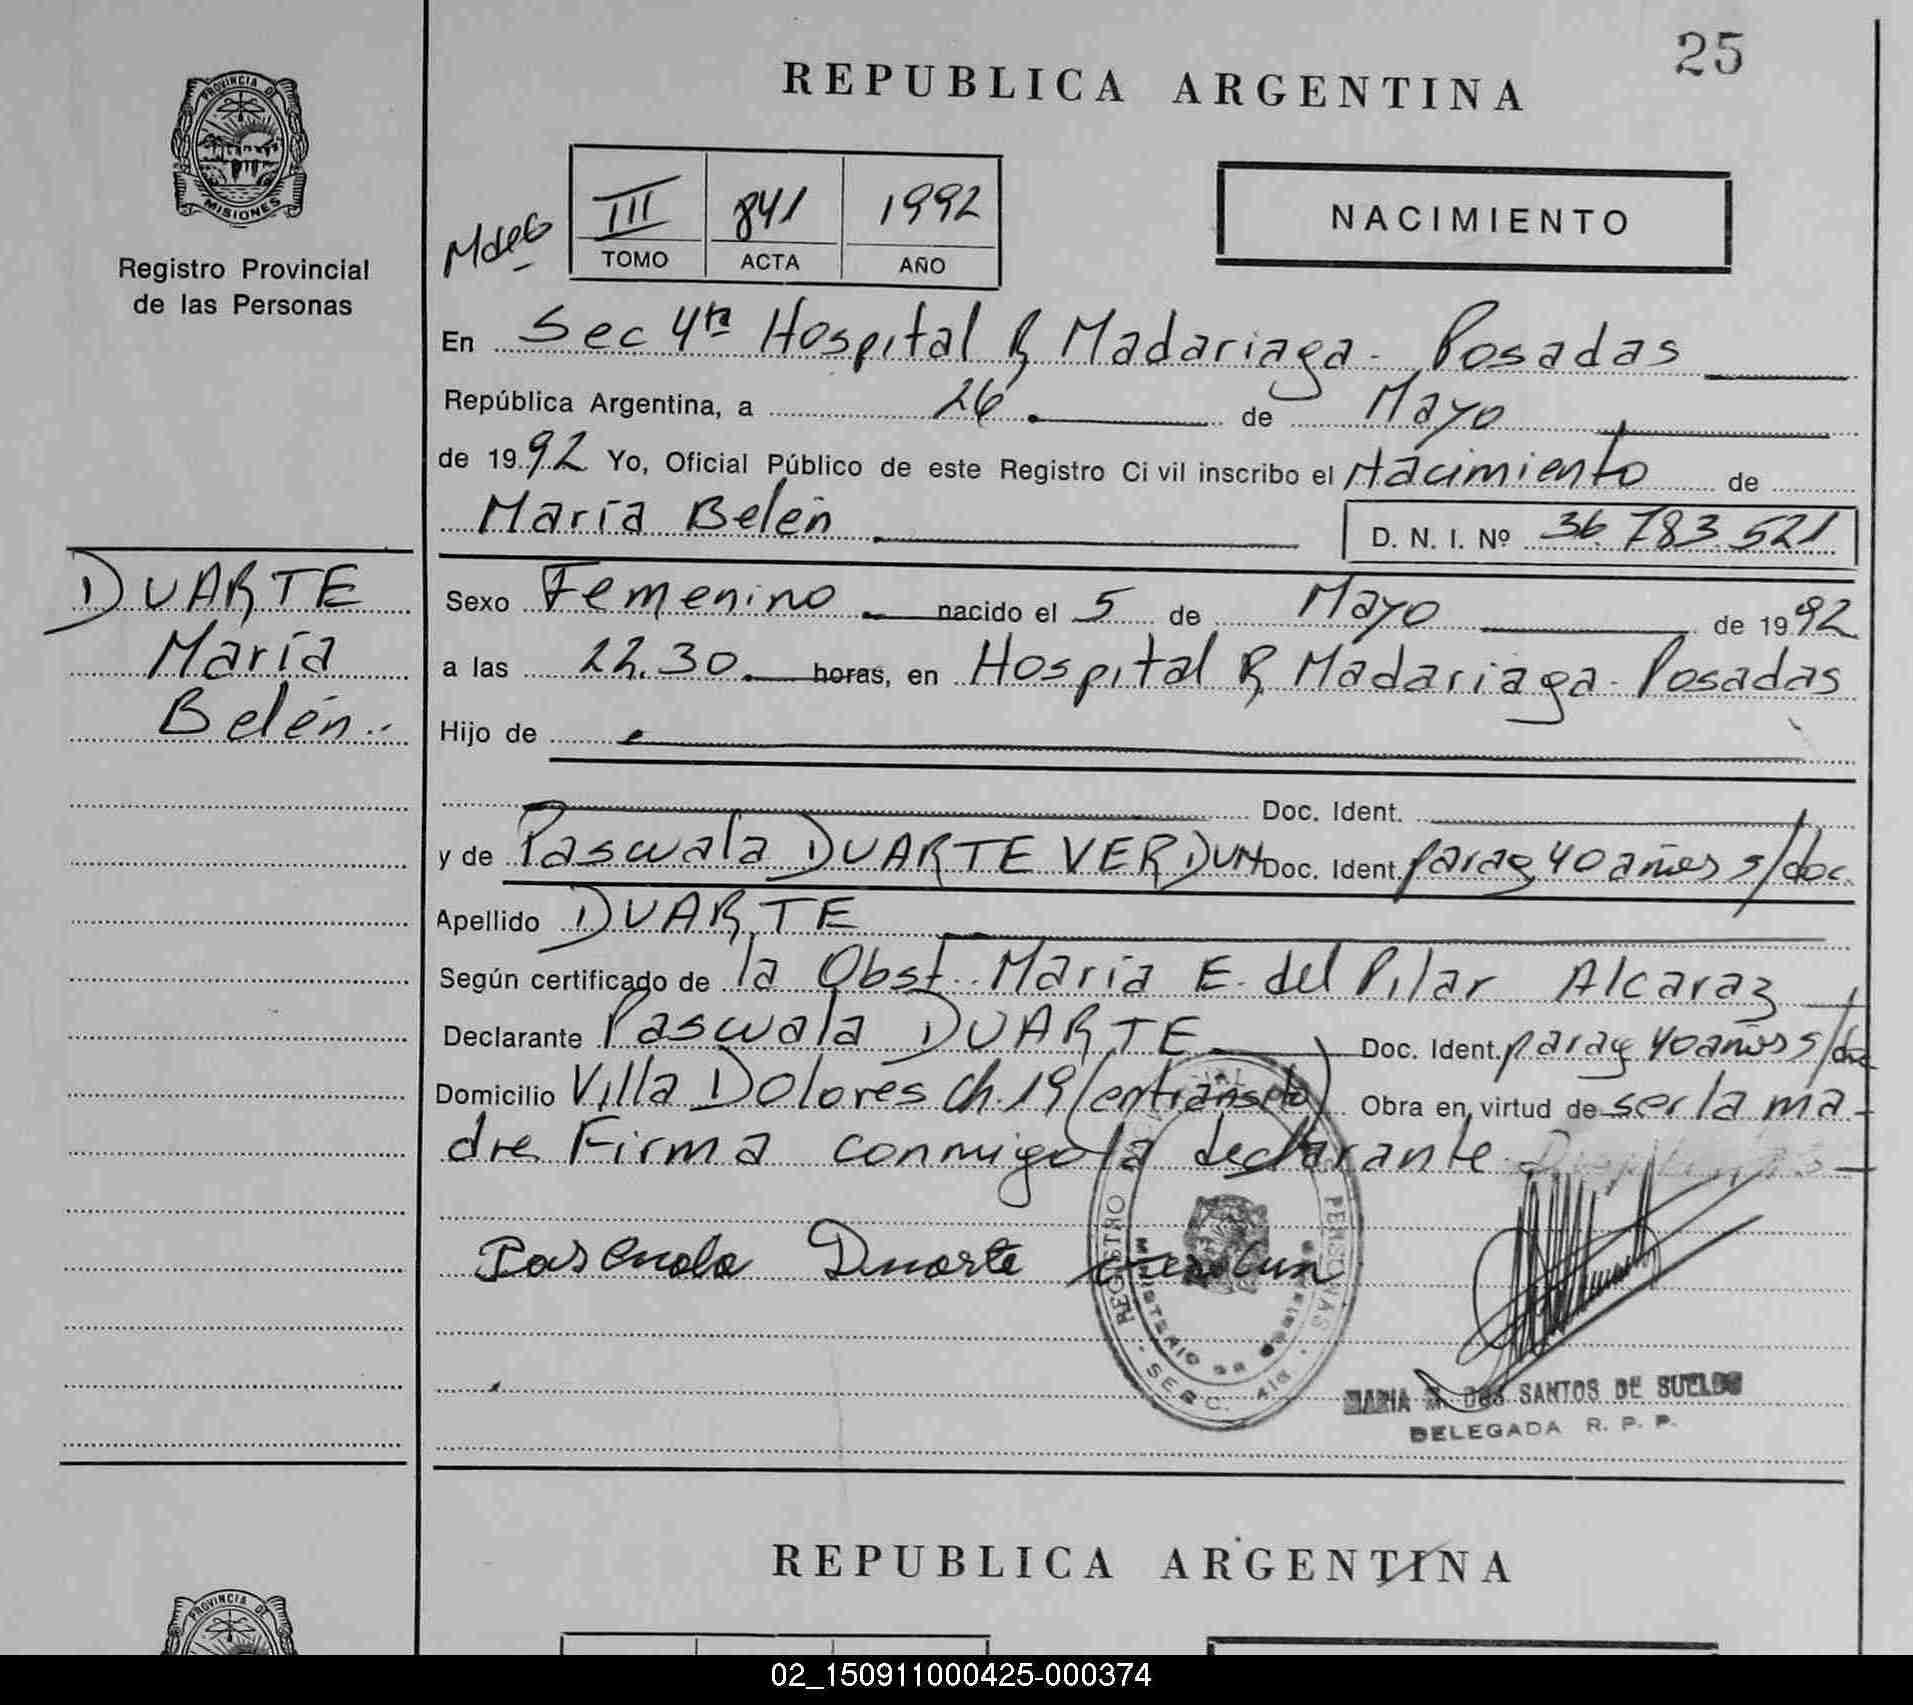 25
REPUBLICA ARGENTINA
PROVINCIA DE
MISIONES
Registro Provincial
de las Personas
III 841 1992
TOMO ACTA AÑO
NACIMIENTO
En Sec 4ta Hospital R Madariaga - Posadas
República Argentina, a 26 de Mayo
de 1992 Yo, Oficial Público de este Registro Civil inscribo el Nacimiento de
María Belén D. N. I. Nº 36.783.521
DUARTE
María
Belén
Sexo Femenino nacido el 5 de Mayo de 1992
a las 22.30 horas, en Hospital R Madariaga - Posadas
Hijo de
Doc. Ident.
y de Pascuala DUARTE VERDUN Doc. Ident. parag 40 años s/doc.
Apellido DUARTE
Según certificado de la Obst. María E. del Pilar Alcaraz
Declarante Pascuala DUARTE Doc. Ident. parag 40 años s/doc
Domicilio Villa Dolores Ch. 19 (en tránsito) Obra en virtud de ser la ma-
dre Firma conmigo la declarante
Pascuala Duarte Verdun
REGISTRO PERSONAS
MINISTERIO DE GOBIERNO
MARIA M. DOS SANTOS DE SUELDO
DELEGADA R. P. P.
REPUBLICA ARGENTINA
PROVINCIA DE
02_150911000425-000374